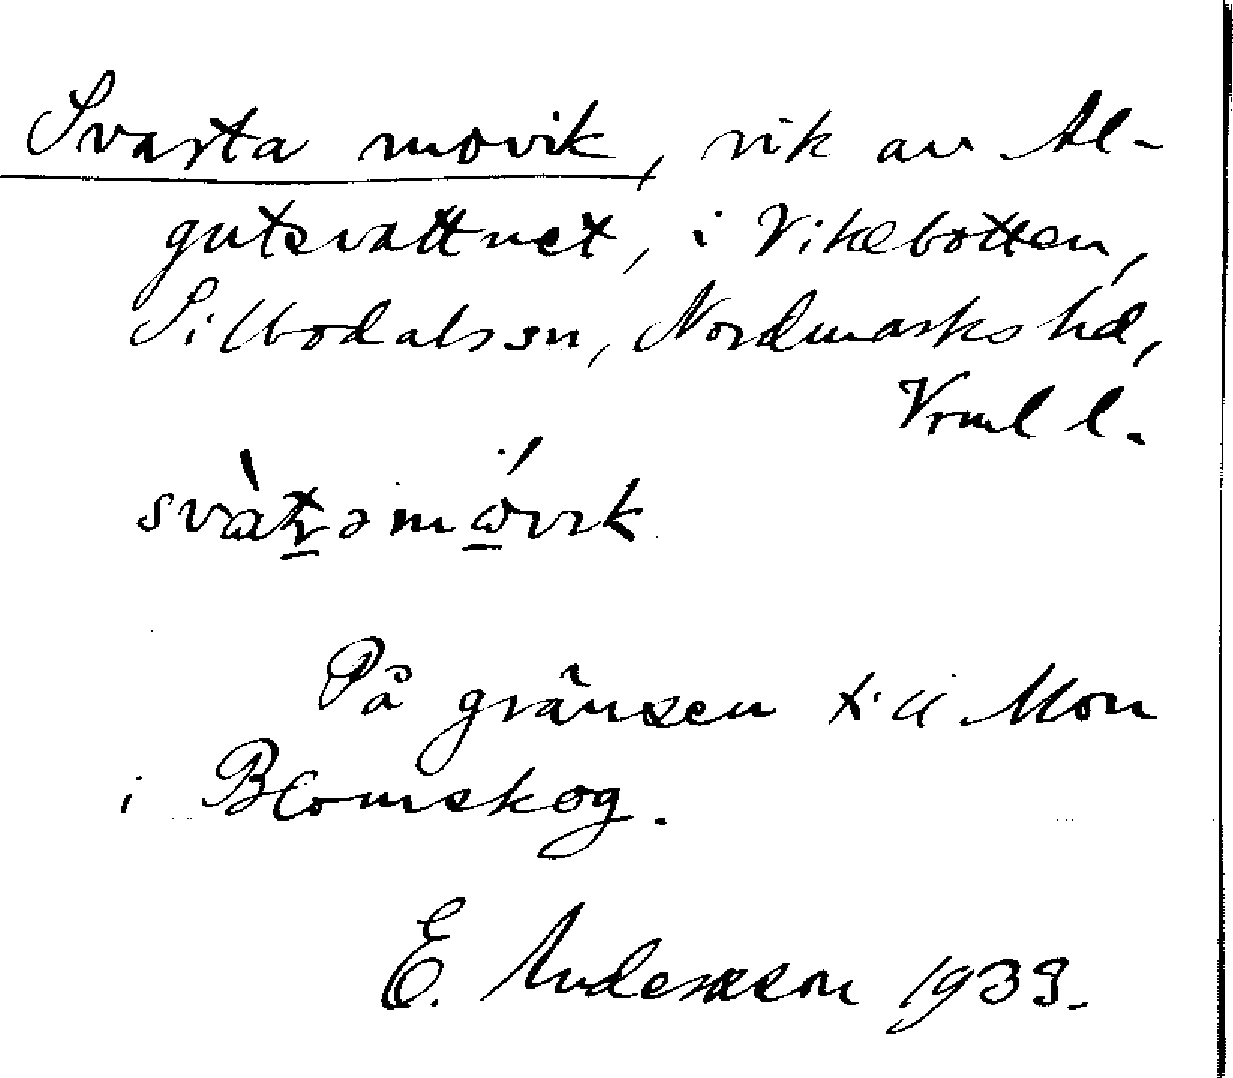 Svarta movik, vik av Al-
gutsvattnet, i Vikebotten,
Silbodals sn, Nordmarks hd,
Vrml l.
På gränsen till Mon
i Blomskog.
E. Andersson 1939.